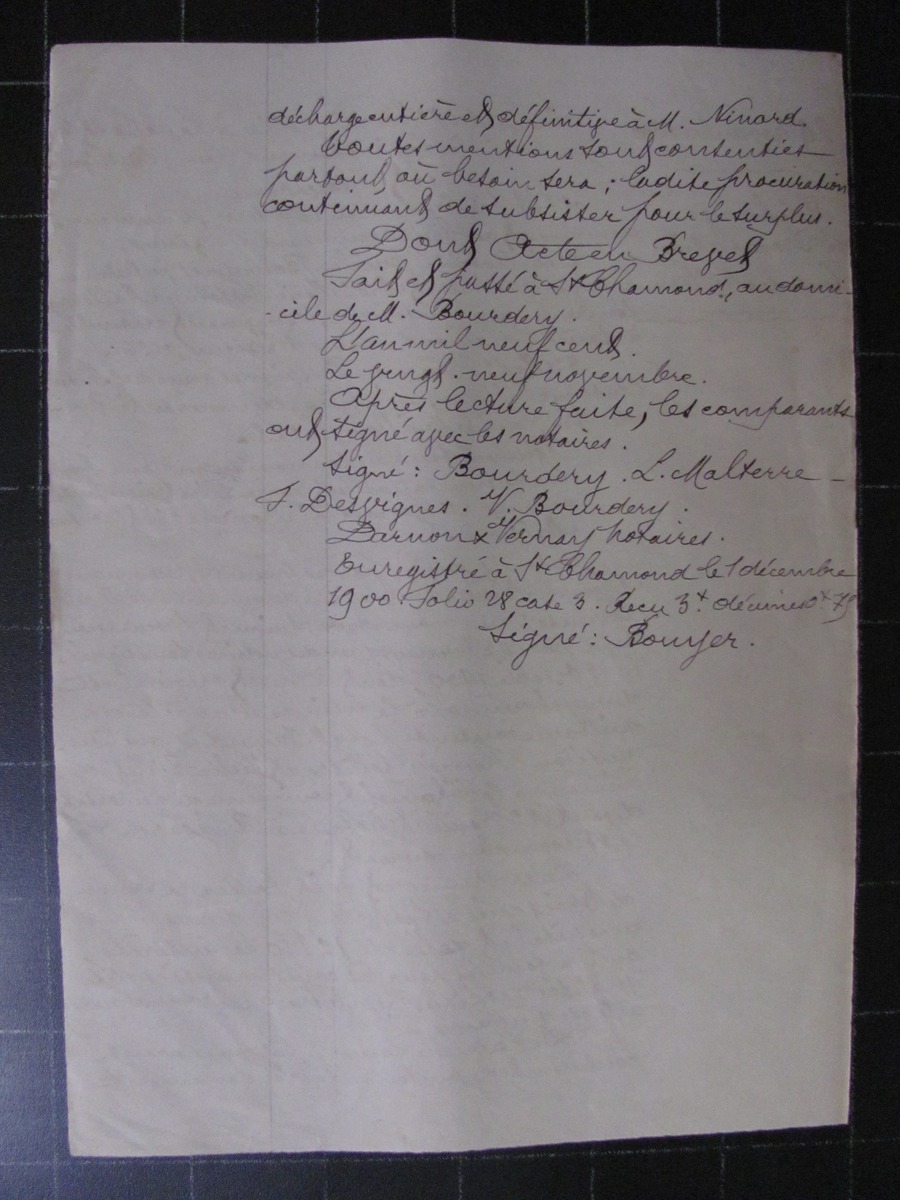 décharge entière et définitive à M. Ninard.
Toutes mentions sont consenties
partout où besoin sera ; ladite procuration
continuant de subsister pour le surplus.
Dont Acte en Brevet
Fait et passé à St Chamond, au domi-
-cile de M. Bourdery.
L'an mil neuf cent.
Le vingt-neuf novembre.
Après lecture faite, les comparants
ont signé avec les notaires.
Signé : Bourdery. L. Malterre -
F. Desvignes. V. Bourdery.
Darnon & Vernay notaires.
Enregistré à St Chamond le 1 décembre
1900. Folio 28 case 3. Reçu 3f décimes 0f 75
Signé : Bouyer.